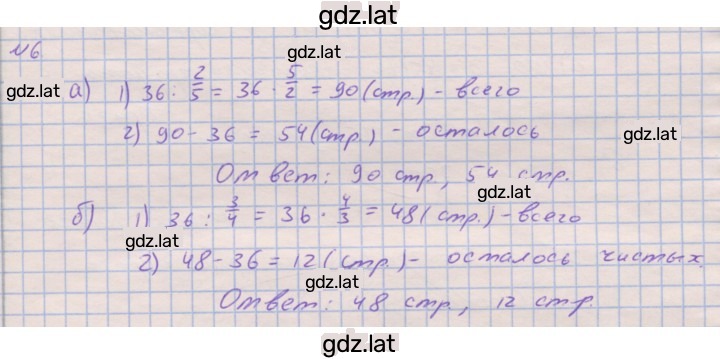 gdz.lat
№6
gdz.lat
gdz.lat а) 1) 36 : 2/5 = 36 · 5/2 = 90 (стр.) - всего
2) 90 - 36 = 54 (стр.) - осталось gdz.lat
Ответ: 90 стр., 54 стр.
gdz.lat
б) 1) 36 : 3/4 = 36 · 4/3 = 48 (стр.) - всего
gdz.lat
2) 48 - 36 = 12 (стр.) - осталось чистых.
gdz.lat
Ответ: 48 стр., 12 стр.
gdz.lat